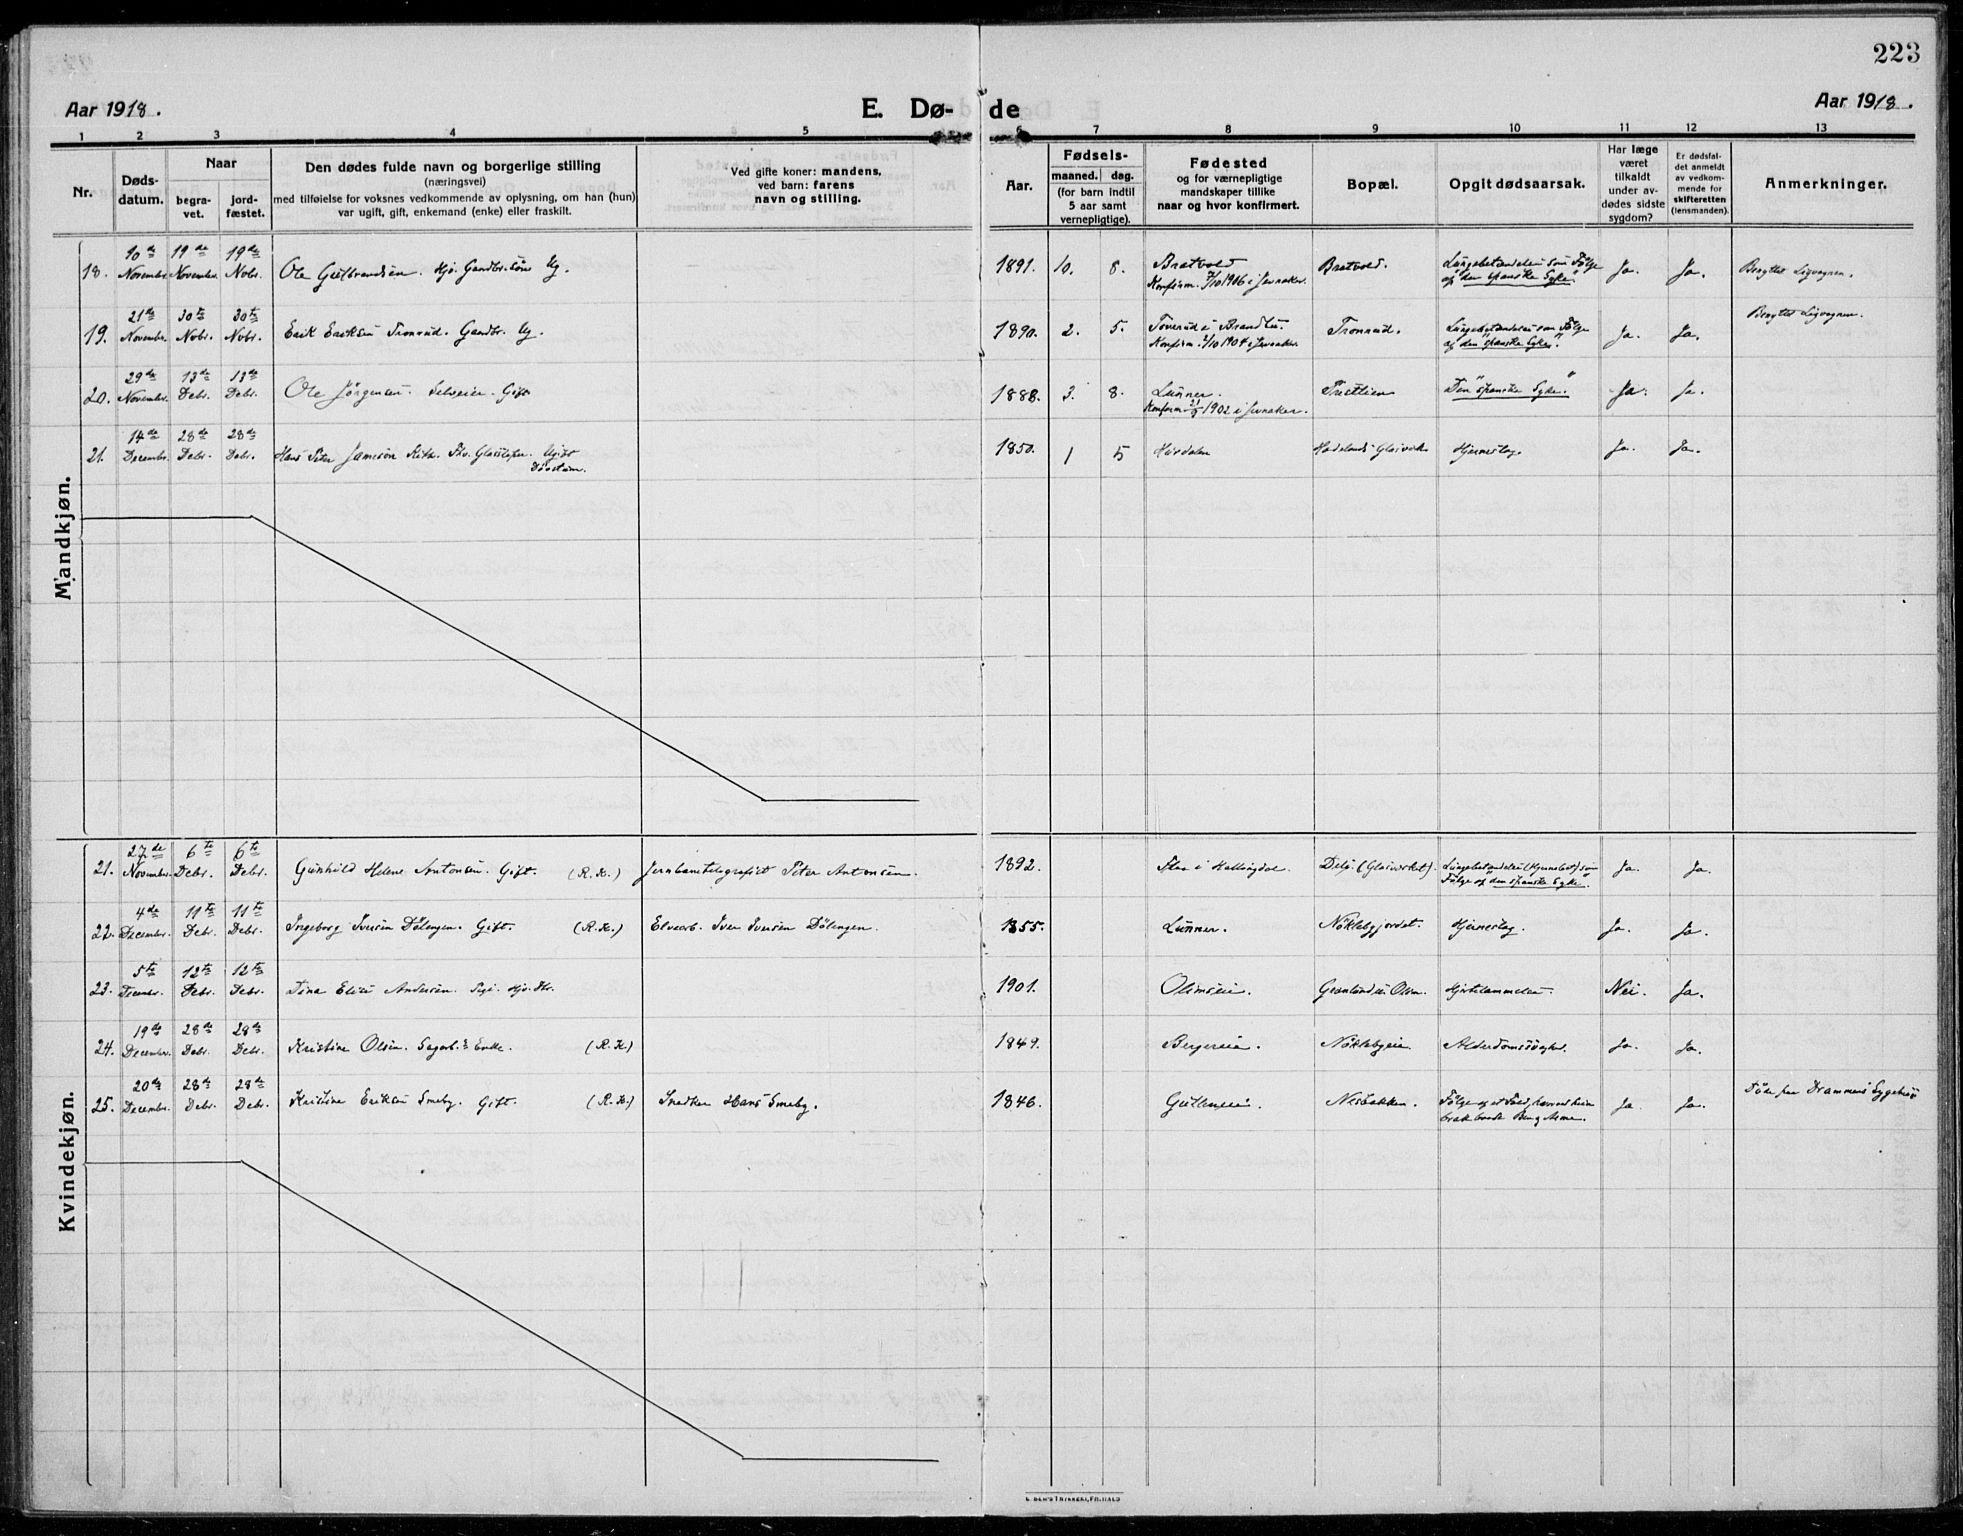 223
Aar 1918.
E. Dø- de
Aar 1918.
1 2 3 4 5 6 7 8 9 10 11 12 13
Nr.
Døds-
datum.
Naar
begra-
vet.
jord-
fæstet.
Den dødes fulde navn og borgerlige stilling
(næringsvei)
med tilføielse for voksnes vedkommende av oplysning, om han (hun)
var ugift, gift, enkemand (enke) eller fraskilt.
Ved gifte koner: mandens,
ved barn: farens
navn og stilling.
Aar.
Fødsels-
maaned. dag.
(for barn indtil
5 aar samt
vernepligtige).
Fødested
og for værnepligtige
mandskaper tillike
naar og hvor konfirmert.
Bopæl.
Opgit dødsaarsak.
Har læge
været
tilkaldt
under av-
dødes sidste
sygdom?
Er dødsfal-
det anmeldt
av vedkom-
mende for
skifteretten
(lensmanden).
Anmerkninger.
Mandkjøn.
10de 19de 19de
18. Novembr. Novembr. Nobr. Ole Gulbrandsen. Hjs. Gaardbr. Søn Ug. 1891. 10. 8. Bratvold Bratvold. Lungebetændelse som Følge Ja. Ja. Benyttet Ligvognen.
Konfirm. 7/10 1906 i Jevnaker. af "den spanske Syke".
21de 30te 30te Benyttet Ligvognen.
19. Novembr. Nobr. Nobr. Erik Eriksen Tronrud. Gaardbr. Ug. 1890. 2. 5. Toverud i Brandbu. Tronrud. Lungebetændelse som Følge Ja. Ja.
Konfirm. 2/10 1904 i Jevnaker. af "den spanske Syke".
29de 13de 13de
20. Novembr. Debr. Debr. Ole Jörgensen. Selveier. Gift 1888. 3. 8. Lunner. "Den spanske Syke." Ja. Ja.
Konfirm. 1902 i Jevnaker.
14de 28de 28de
21. Decembr. Debr. Debr. Hans Peter Jameson Glassliper. Ugift 1850. 1 5 Hurdalen Hadelands Glasverk Hjerneslag. Ja. Ja.
Døvstum.
Kvindekjøn.
27de 6te 6te
21. Novembr. Debr. Debr. Gunhild Helene Antonsen. Gift. (R.K.) Jernbanetelegrafist Peter Antonsen 1892. Flaa i Hallingdal. (Glasverket). Lungebetændelse (Hjernebet) som Ja. Ja.
Følge af "den spanske Syke".
4de 11te 11te
22. Decembr. Debr. Debr. Ingeborg Iversen Dölengen. Gift. (R.K.) Elvearb. Iver Iversen Dölengen. 1855. Lunner. Nöklebygjordet. Hjerneslag. Ja. Ja.
5te 12te 12te
23. Decembr. Debr. Debr. Tina Elise Andersen. Hjs. Dtr. 1901. Olimseie. Grønlandseie Olum. Hjertelammelse. Nei. Ja.
19de 28de 28de
24. Decembr. Debr. Debr. Kristine Olsen. Sagarb.s Enke. (R.K.) 1849. Bergereie. Nöklebyeie Alderdomssvaghed. Ja. Ja.
20de 28de 28de
25. Decembr. Debr. Debr. Kristine Eriksen Smeby. Gift. (R.K.) Snedker Hans Smeby. 1846. Gulleneie. Nesbakken. Følge af et Fald, hvorved hun Ja. Ja. Döde paa Drammens Sygehus
brak baade Ben og Arme.